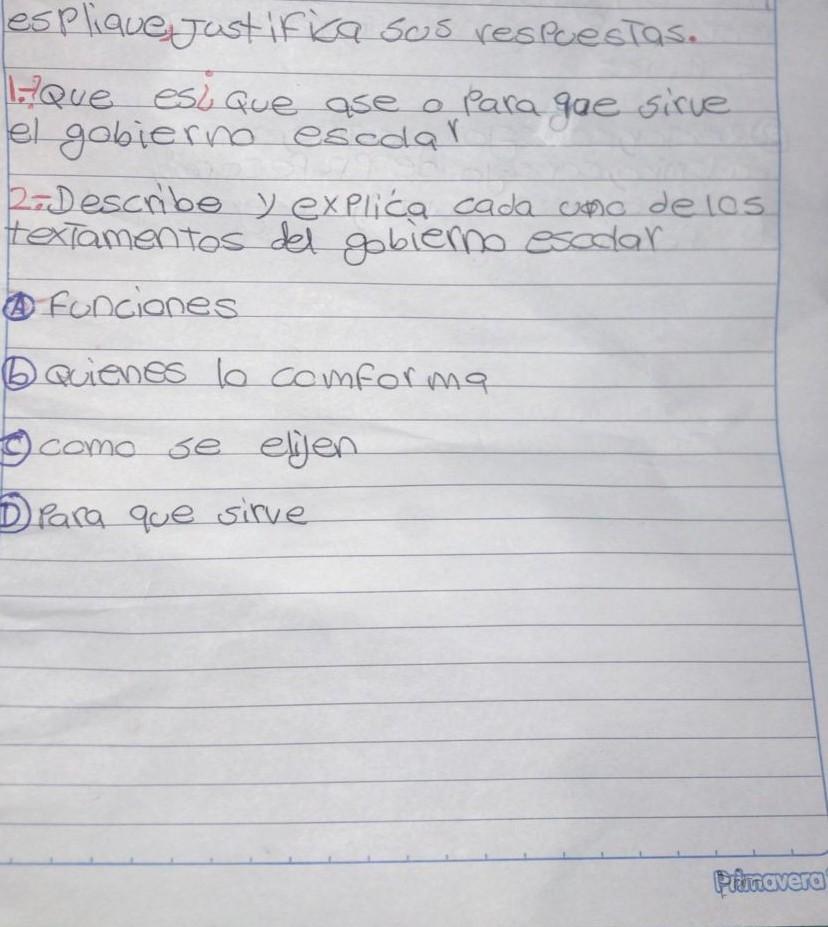 esplique, Justifica sus respuestas.
1.-?Que es¿ Que ase o Para que sirve
el gobierno escolar
2.-Describe y explica cada uno de los
textamentos del gobierno escolar
A funciones
b quienes lo comforma
C como se elijen
D Para que sirve
Primavera